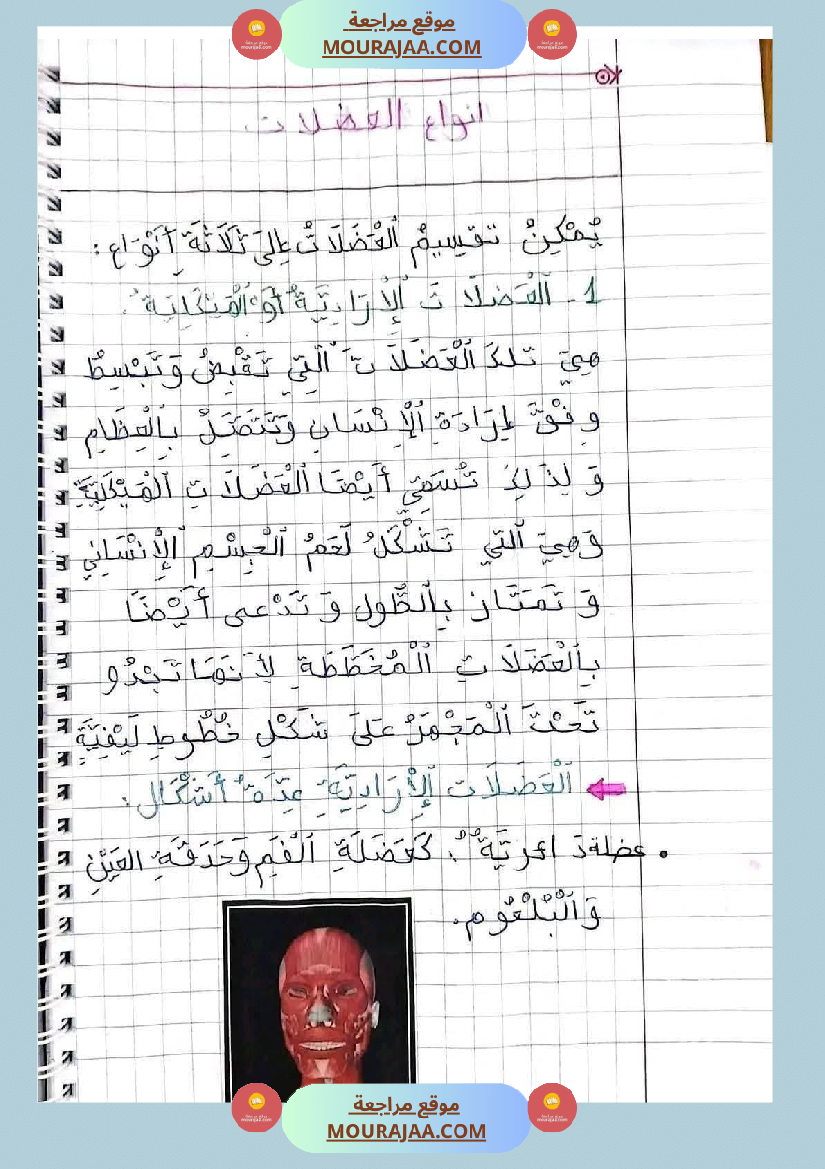 موقع مراجعة
MOURAJAA.COM
انواع العضلات
يُمْكِنُ تقسِيمُ ٱلْعَضَلَاتْ إِلَىَ ثَلَاثَةِ أَنْوَاع :
1 - ٱلْعَضلَاتَ ٱلْإِرَادِيَّةُ أَوْ ٱلْهَيْكَلِيَة :
هِيَ تلكَ ٱلْعَضَلَاتَ ٱلَّتِي تَقْبِضُ وَتَبْسِطُ
وِفْقَ إِرَادَةِ ٱلْإِنْسَانِ وَتَتَصَّلْ بِٱلْعِظَامِ
وَلِذَلِكَ تُسَمَّى أَيْضًا ٱلْعَضَلَاتِ ٱلْهَيْكَلِيَّةَ
وَهِيَ ٱلتي تَشَكْلُ لَحَمُ ٱلْجِسْمِ ٱلإِنْسَانِي
وَ تَمَتَازُ بِٱلطُّولِ وَ تَدْعى أَيْضًا
بِٱلْعَضَلَاتِ ٱلْمُخَطَّطَةِ لِأَنَهَا تَبْدُو
تَحْتَ ٱلْمَجْهَرْ عَلَىَ شَكْلِ خُطُوطٍ لَيْفِيَّةٍ
ٱلْعَضَلَات ٱلْإِرَادِيَّةِ عِدَّةُ أَشْكَال :
• عضلة دَائريَّةُ : كَعَضَلَةِ ٱلْفَمِ وَحَدَقَةِ العَيْنِ
وَٱلْبُلْعُوم.
موقع مراجعة
MOURAJAA.COM